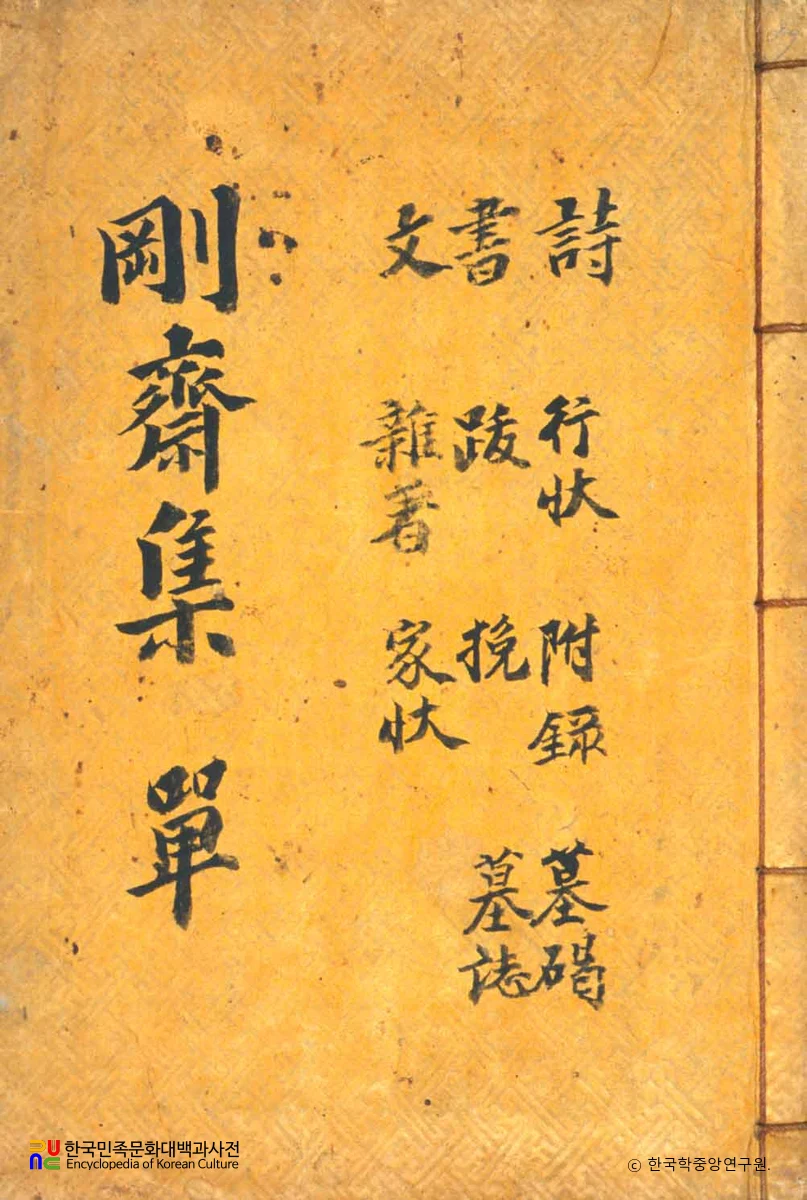 詩 書 文
行狀 跋 雜著
附錄 挽 家狀
墓碣 墓誌
剛齋集 單
한국민족문화대백과사전
Encyclopedia of Korean Culture
ⓒ 한국학중앙연구원.